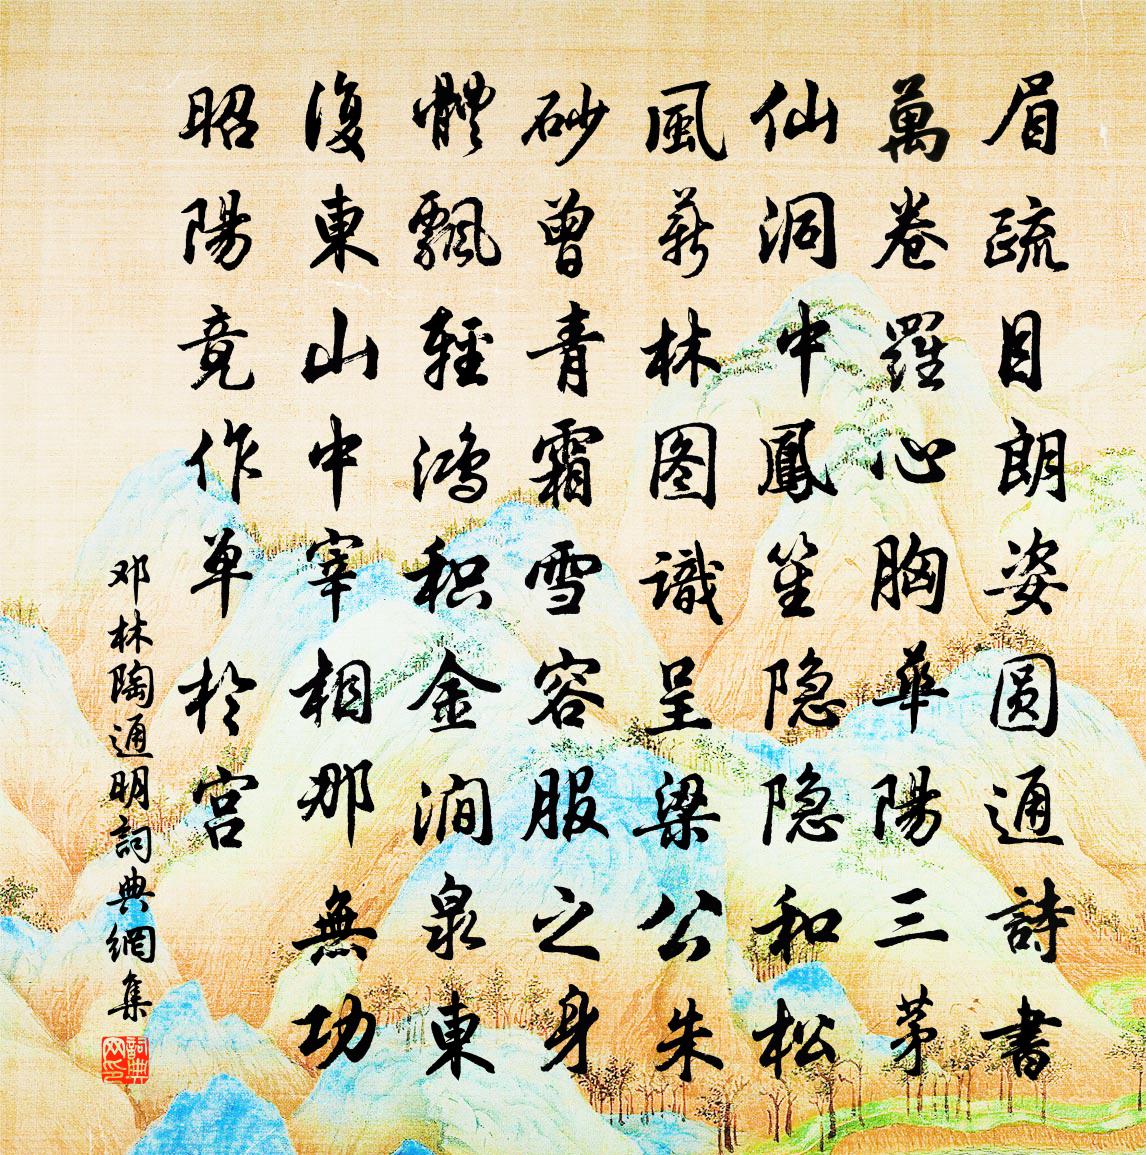 眉疏目朗姿圆通詩書
萬卷羅心胸華陽三茅
仙洞中鳳笙隐隐和松
風薪林图識呈梁公朱
砂曾青霜雪容服之身
體飄輕鸿积金澗泉東
復東山中宰相那無功
昭陽竟作单於宫
邓林陶通明詞典網集
詞典网印